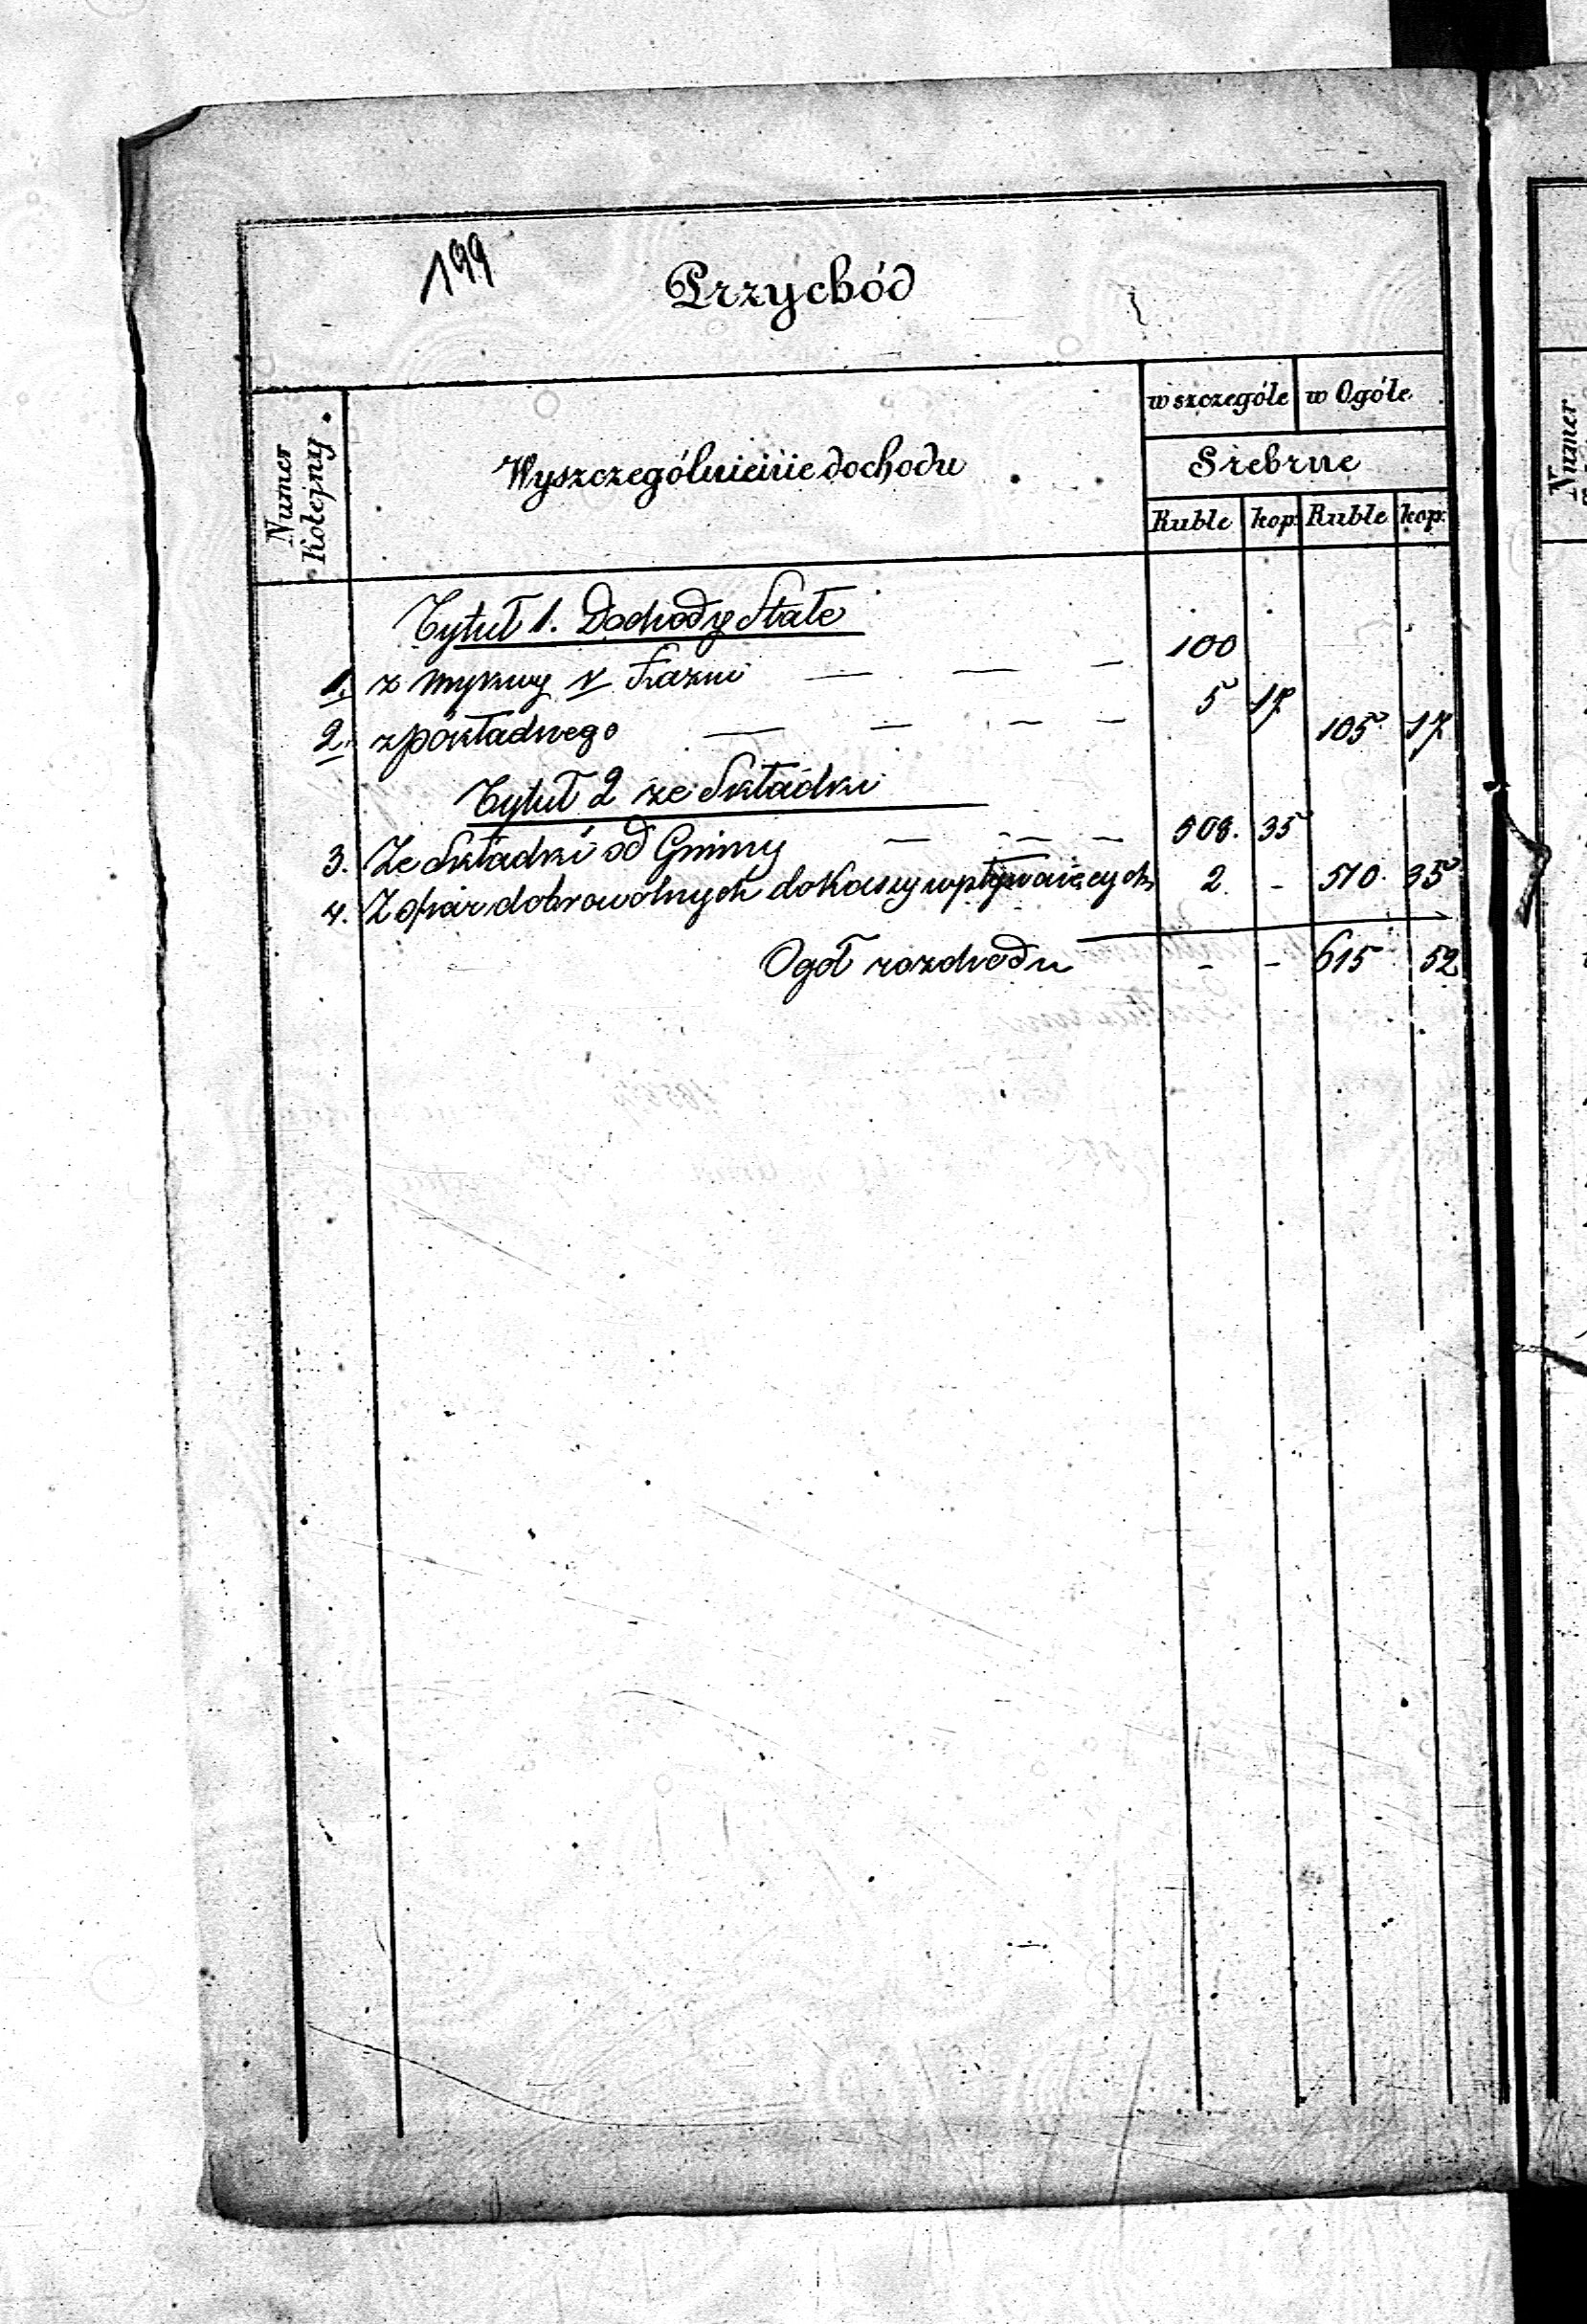 199
Przychód
Numer Kolejny.
Wyszczególnienie dochodu
w szczególe | w Ogóle
Srebrne
Ruble | kop: | Ruble | kop:
Tytuł 1. Dochody Stałe
1. z Mykwy v Łazni — — — 100
2. z pokładnego — — — — 5 17 105 17
Tytuł 2 ze Składki
3. Ze Składki od Gminy — — — — 508. 35
4. Z ofiar dobrowolnych do Kassy wpływaiących 2. - 510. 35
Ogół rozchodu - - 615 52
Numer